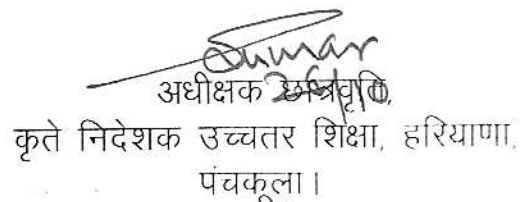 Kumar
अधीक्षक छात्रवृति,
कृते निदेशक उच्चतर शिक्षा, हरियाणा,
पंचकूला।